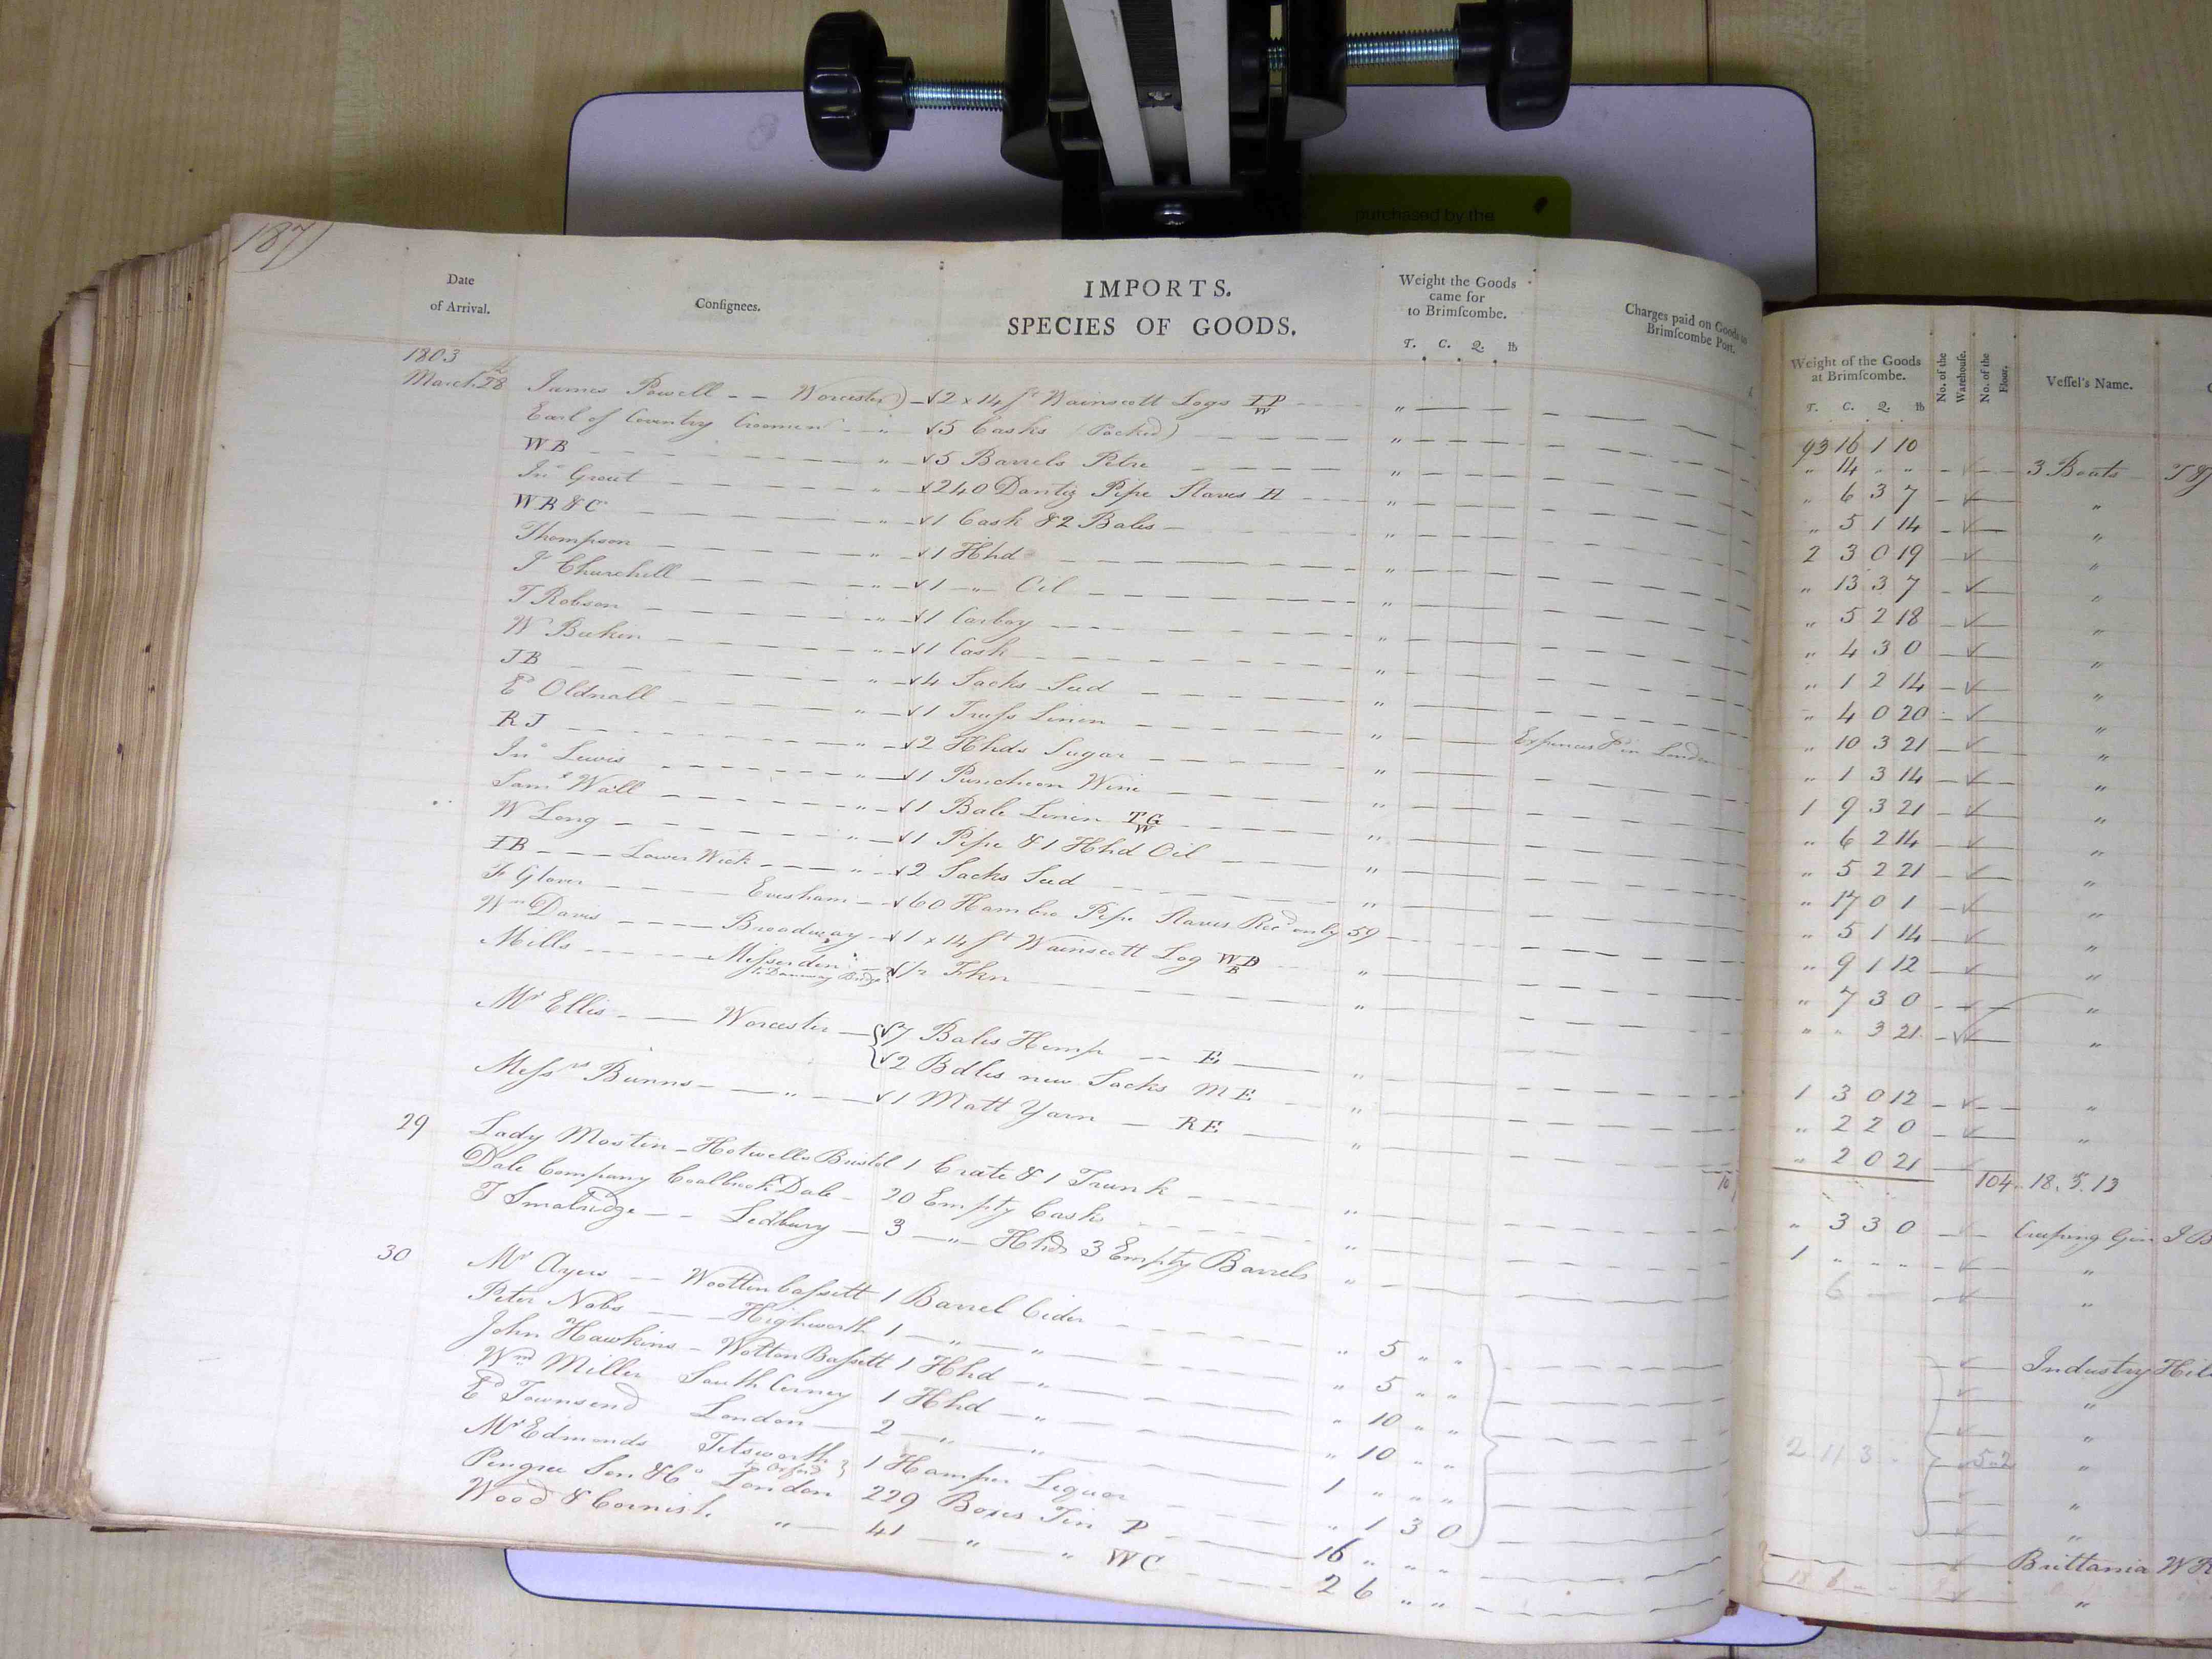 purchased by the
187
Date of Arrival.
Consignees.
IMPORTS.
SPECIES OF GOODS.
Weight the Goods came for to Brimscombe.
T. C. Q. lb
Charges paid on Goods to Brimscombe Port.
Weight of the Goods at Brimscombe.
T. C. Q. lb
No. of the Warehouse.
No. of the Floor.
Vessel's Name.
1803
March 28 James Powell - - Worcester) - √2 x 14 ft Wainscott Logs IP W " 93 16 1 10
Earl of Coventry " √5 Casks (Packed) " " 14 " " 3 Boats
WB " √5 Barrels Petre " " 6 3 7 "
Jno Grout " √240 Dantzig Pipe Staves H " " 5 1 14 "
WB & C " √1 Cask & 2 Bales " 2 3 0 19 "
Thompson " √1 Hhd " " 13 3 7 "
J Churchill " √1 " Oil " " 5 2 18 "
T Robson " √1 Carboy " " 4 3 0 "
W " √1 Cask " " 1 2 14 "
JB " √4 Sacks Seed " " 4 0 20 "
Ed Oldnall " √1 Truss Linen " Expences Pd in London " 10 3 21 "
RJ " √2 Hhds Sugar " " 1 3 14 "
Jno Lewis " √1 Puncheon Wine " 1 9 3 21 "
Saml Wall " √1 Bale Linen TG W " " 6 2 14 "
W Long " √1 Pipe & 1 Hhd Oil " " 5 2 21 "
IB Lower Wick " √2 Sacks Seed " " 17 0 1 "
F Glover Evesham √60 Hambro Pipe Staves Recd only 59 " 5 1 14 "
Wm Davis Broadway √1 x 14 ft Wainscott Log WD B " " 9 1 12 "
Mills Missenden √1/2 Fkn " " 7 3 0 "
" " 3 21 "
Mr Ellis Worcester {√7 Bales Hemp E " 1 3 0 12 "
{√2 Bdles new Sacks ME " " 2 2 0 "
Messrs Binns " √1 Matt Yarn RE " " 2 0 21
104. 18. 3. 13
29 Lady Mostin - Hotwells Bristol 1 Crate & 1 Trunk " " 3 3 0
Dale Company Coalbrook Dale 20 Empty Casks " 1 " " " "
T Smalridge Ledbury 3 " Hhds 3 Empty Barrels " 6 "
30 Mr Ayers Wootten bassett 1 Barrel Cider " 5 " " Industry
Peter Nabs Highworth 1 " " " 5 " " "
John Hawkins - Wotton Bassett 1 Hhd " " 10 " " "
Wm Miller South Cerney 1 Hhd " " 10 " " 2 11 3 "
Ed Townsend London 2 " " 1 " " " "
Mr Edmonds Tetsworth to Oxford } 1 Hamper Liquor " 1 3 0 "
Pingree Son & Co London 229 Boxes Tin P 16 " " " Brittania
Wood & Cornish " 41 " " WC 2 6 " " "